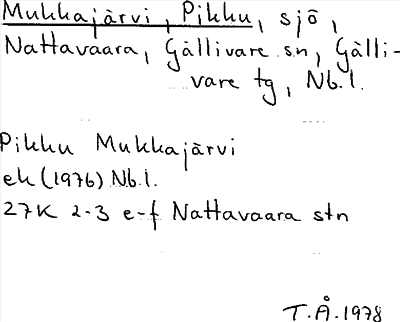 Mukkajärvi, Pikku, sjö,
Nattavaara, Gällivare sn, Gälli-
vare tg, Nb.l.
Pikku Mukkajärvi
ek (1976) Nb.l.
27K 2-3 e-f Nattavaara stn
T.Å.1978